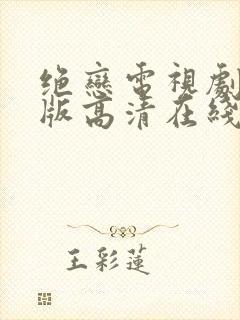 绝戀電視劇
版高清在綫
王彩蓮